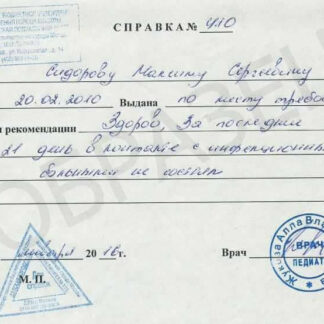 СПРАВКА № 410
Сидорову Максиму Сергеевичу
20.02.2010 Выдана по месту требов
и рекомендации Здоров, За последние
21 день в контакте с инфекционны
больными не состоял
января 20 16 г.
Врач
М. П.
Жукова Алла Вла
ВРАЧ
ПЕДИАТ
ОБРАЗЕЦ